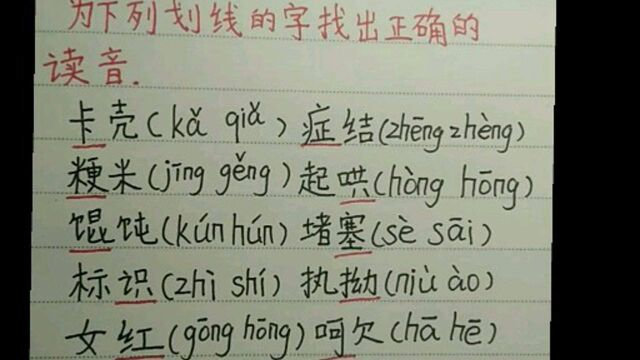 为下列划线的字找出正确的
读音.
卡壳(kǎ qiǎ)症结(zhēng zhèng)
粳米(jīng gěng)起哄(hòng hōng)
馄饨(kún hún)堵塞(sè sāi)
标识(zhì shí)执拗(niù ào)
女红(gōng hōng)呵欠(hā hē)